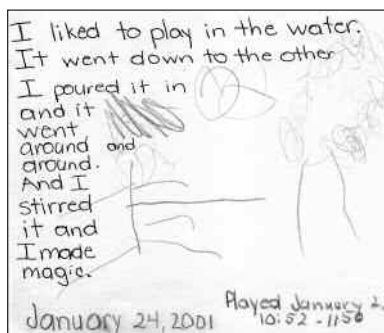 I liked to play in the water.
It went down to the other
I poured it in
and it
went
around and
around.
And I
stirred
it and
I made
magic.
January 24, 2001
Played January 2
10:52 - 11:50